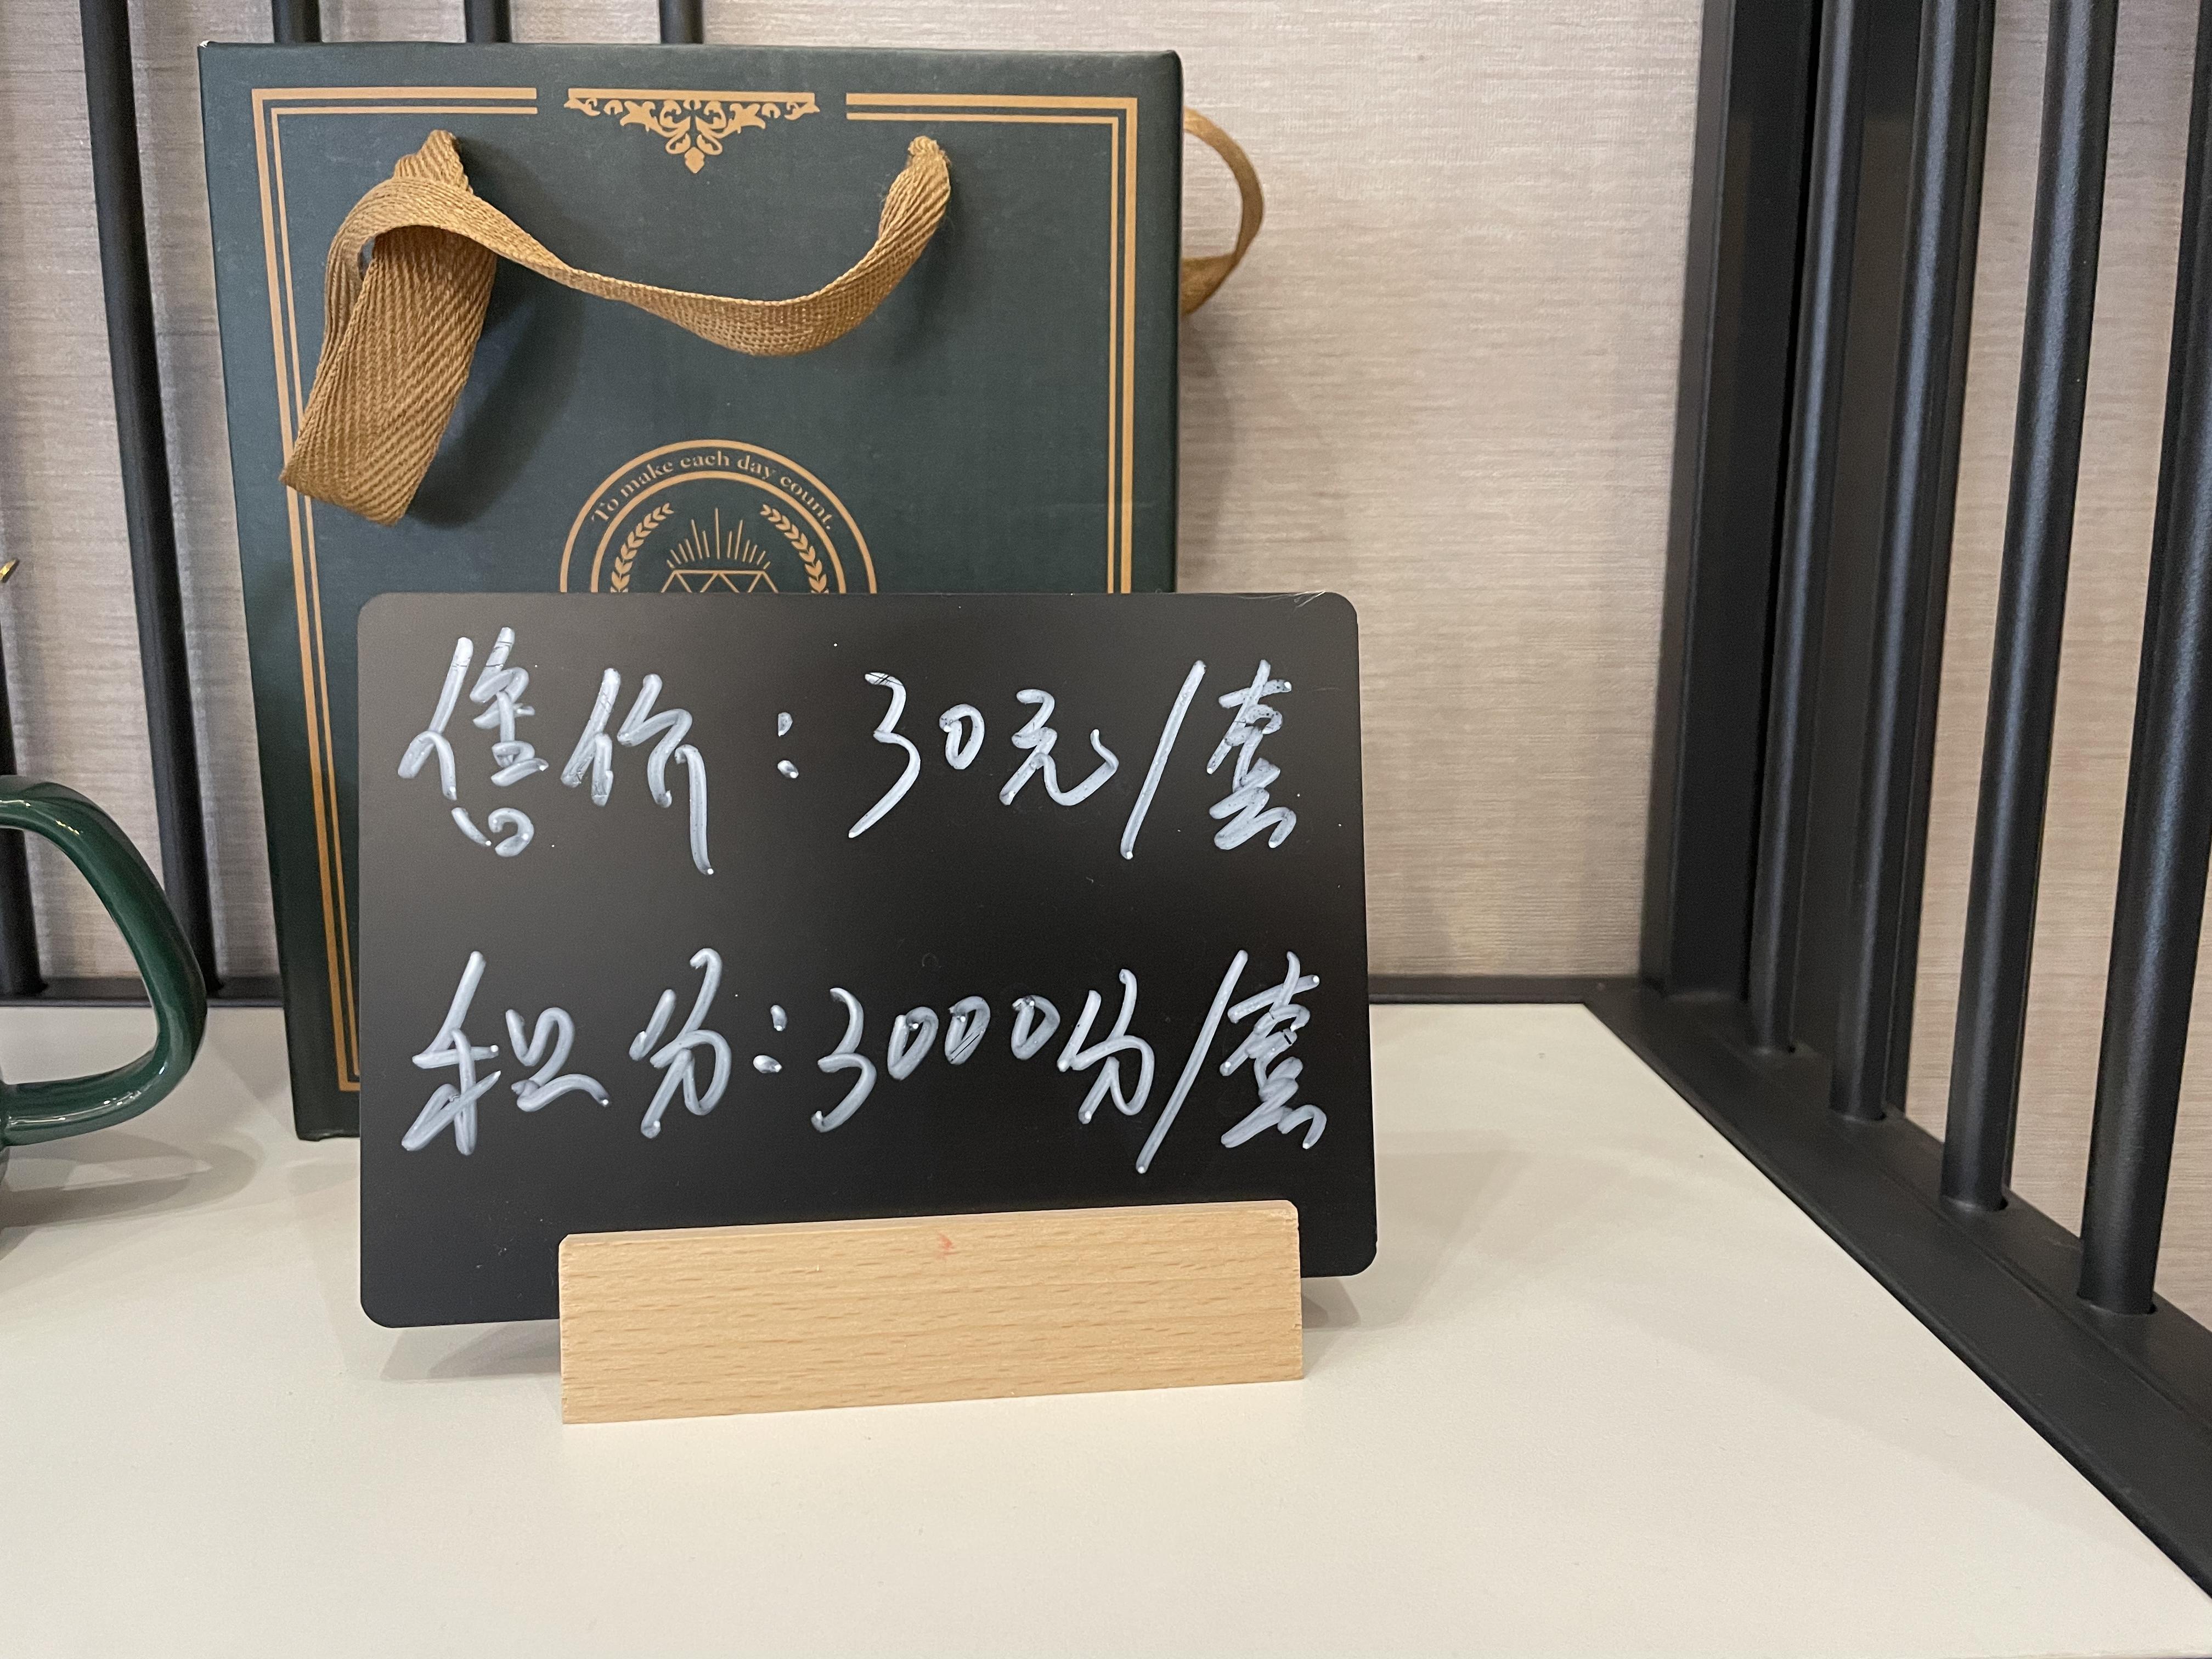 To make each day count.
售价：30元/套
积分：3000分/套